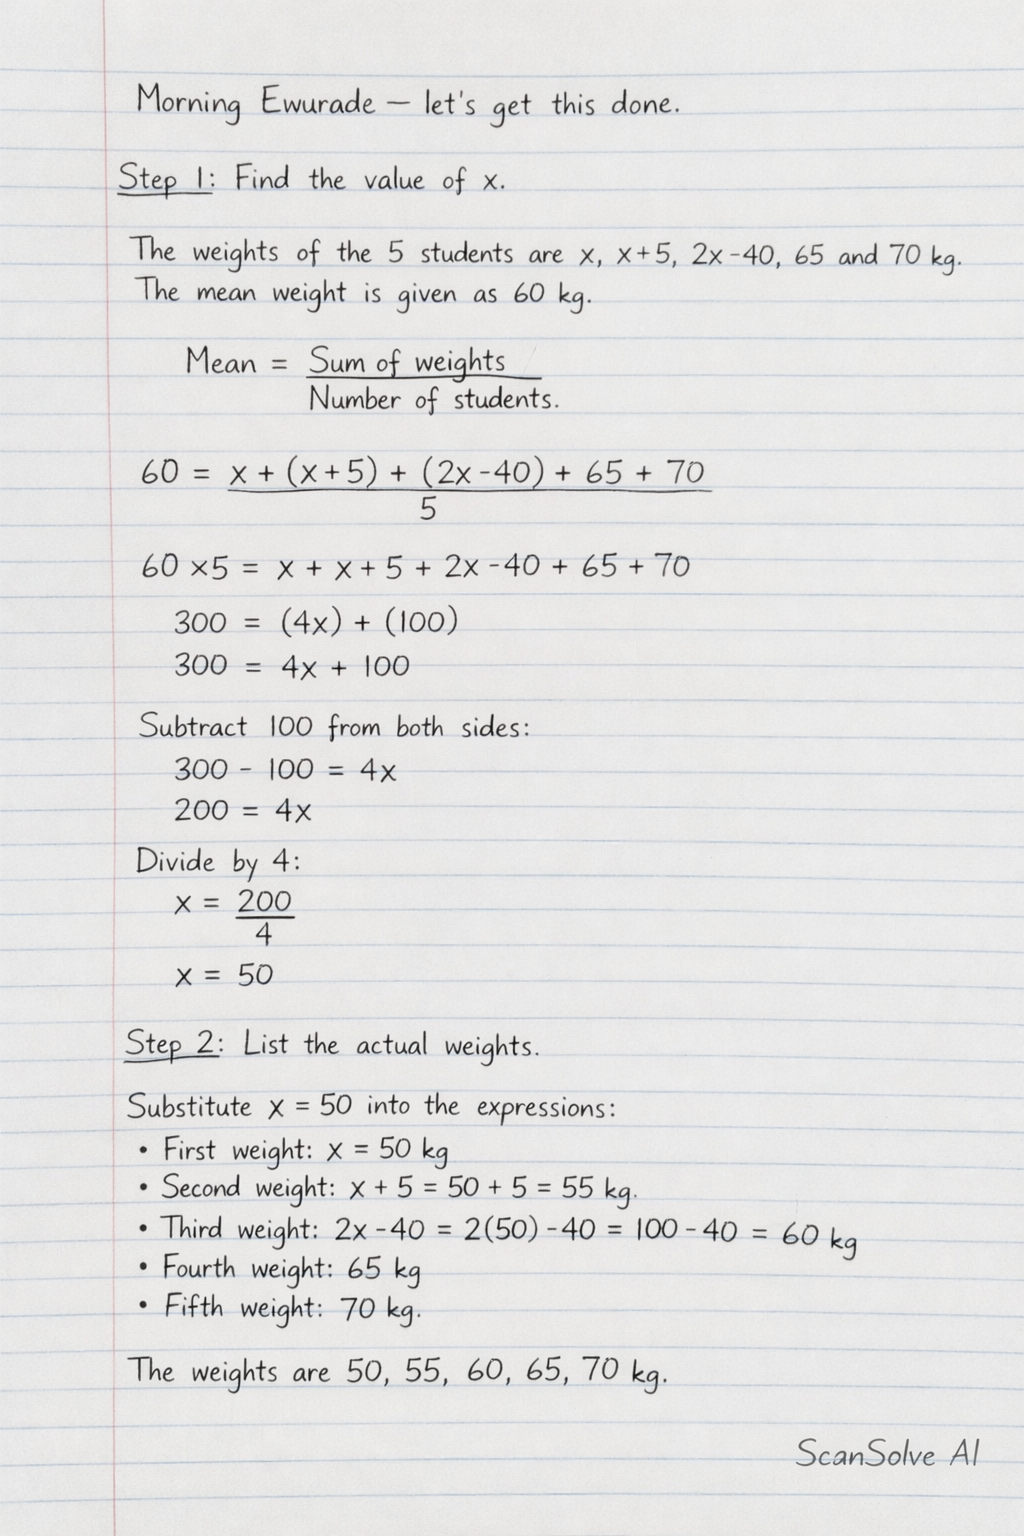 Morning Ewurade — let's get this done.
Step 1: Find the value of x.
The weights of the 5 students are x, x+5, 2x-40, 65 and 70 kg.
The mean weight is given as 60 kg.
Mean = Sum of weights
Number of students.
60 = x + (x+5) + (2x-40) + 65 + 70
5
60 ×5 = x + x + 5 + 2x - 40 + 65 + 70
300 = (4x) + (100)
300 = 4x + 100
Subtract 100 from both sides:
300 - 100 = 4x
200 = 4x
Divide by 4:
x = 200
4
x = 50
Step 2: List the actual weights.
Substitute x = 50 into the expressions:
• First weight: x = 50 kg
• Second weight: x + 5 = 50 + 5 = 55 kg.
• Third weight: 2x - 40 = 2(50) - 40 = 100 - 40 = 60 kg
• Fourth weight: 65 kg
• Fifth weight: 70 kg.
The weights are 50, 55, 60, 65, 70 kg.
ScanSolve AI